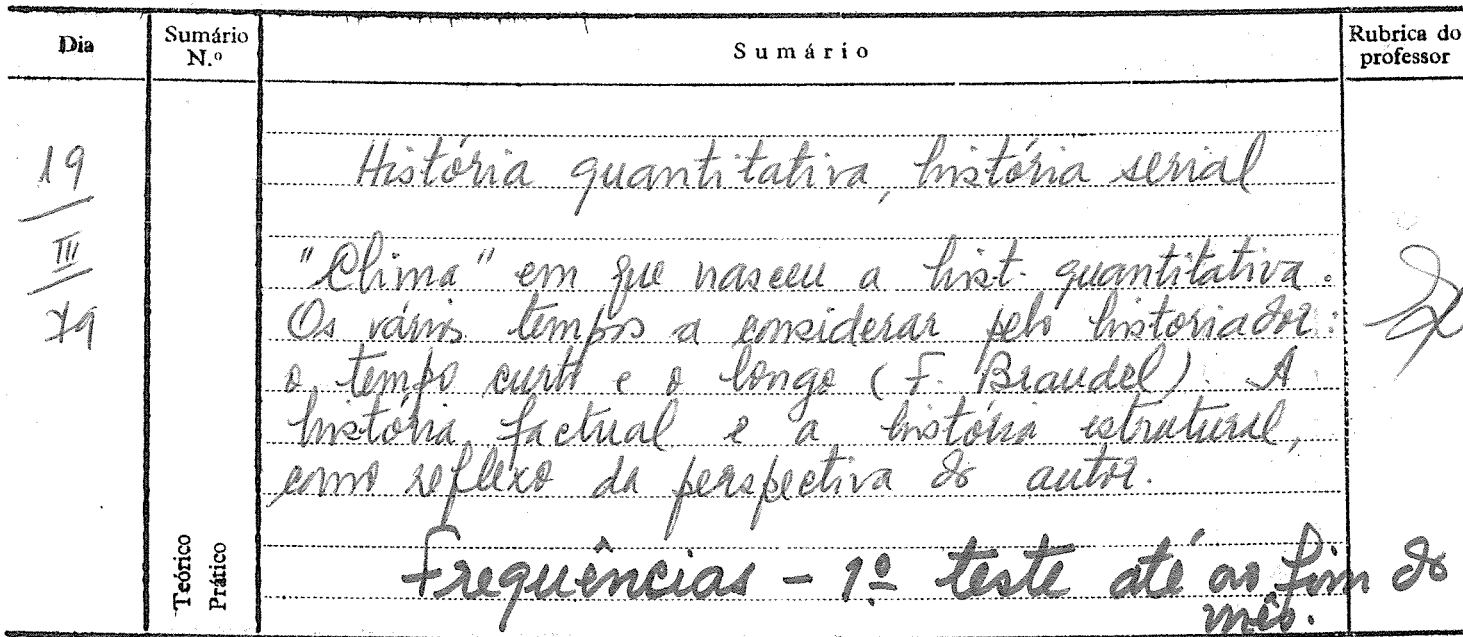 Dia
Sumário N.º
Sumário
Rubrica do professor
19
III
79
História quantitativa, história serial
"Clima" em que nasceu a hist. quantitativa.
Os vários tempos a considerar pelo historiador:
o tempo curto e o longo (F. Braudel). A
história factual e a história estrutural,
como reflexo da perspectiva do autor.
Teórico
Prático
Frequências - 1º teste até ao fim do
mês.